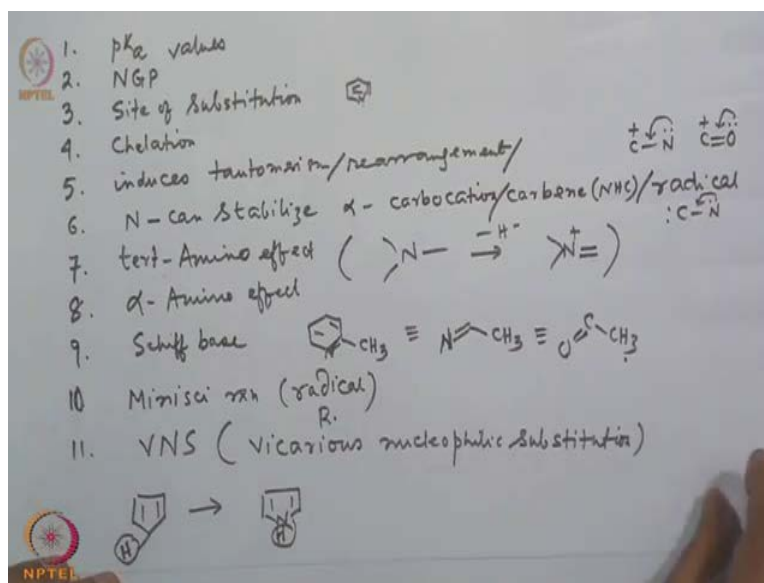 1. pKa values
2. NGP
3. Site of substitution
4. Chelation
5. induces tautomerism/rearrangement/
+C-N: +C=O
6. N-can stabilize α-carbocation/carbene(NHC)/radical
:C-N
7. tert-Amino effect ( >N— -H⁻ → >N⁺= )
8. α-Amino effect
9. Schiff base N CH3 ≡ N CH3 ≡ O C CH3
10 Minisci rxn (radical)
R.
11. VNS ( vicarious nucleophilic substitution)
H → N H
NPTEL
NPTEL